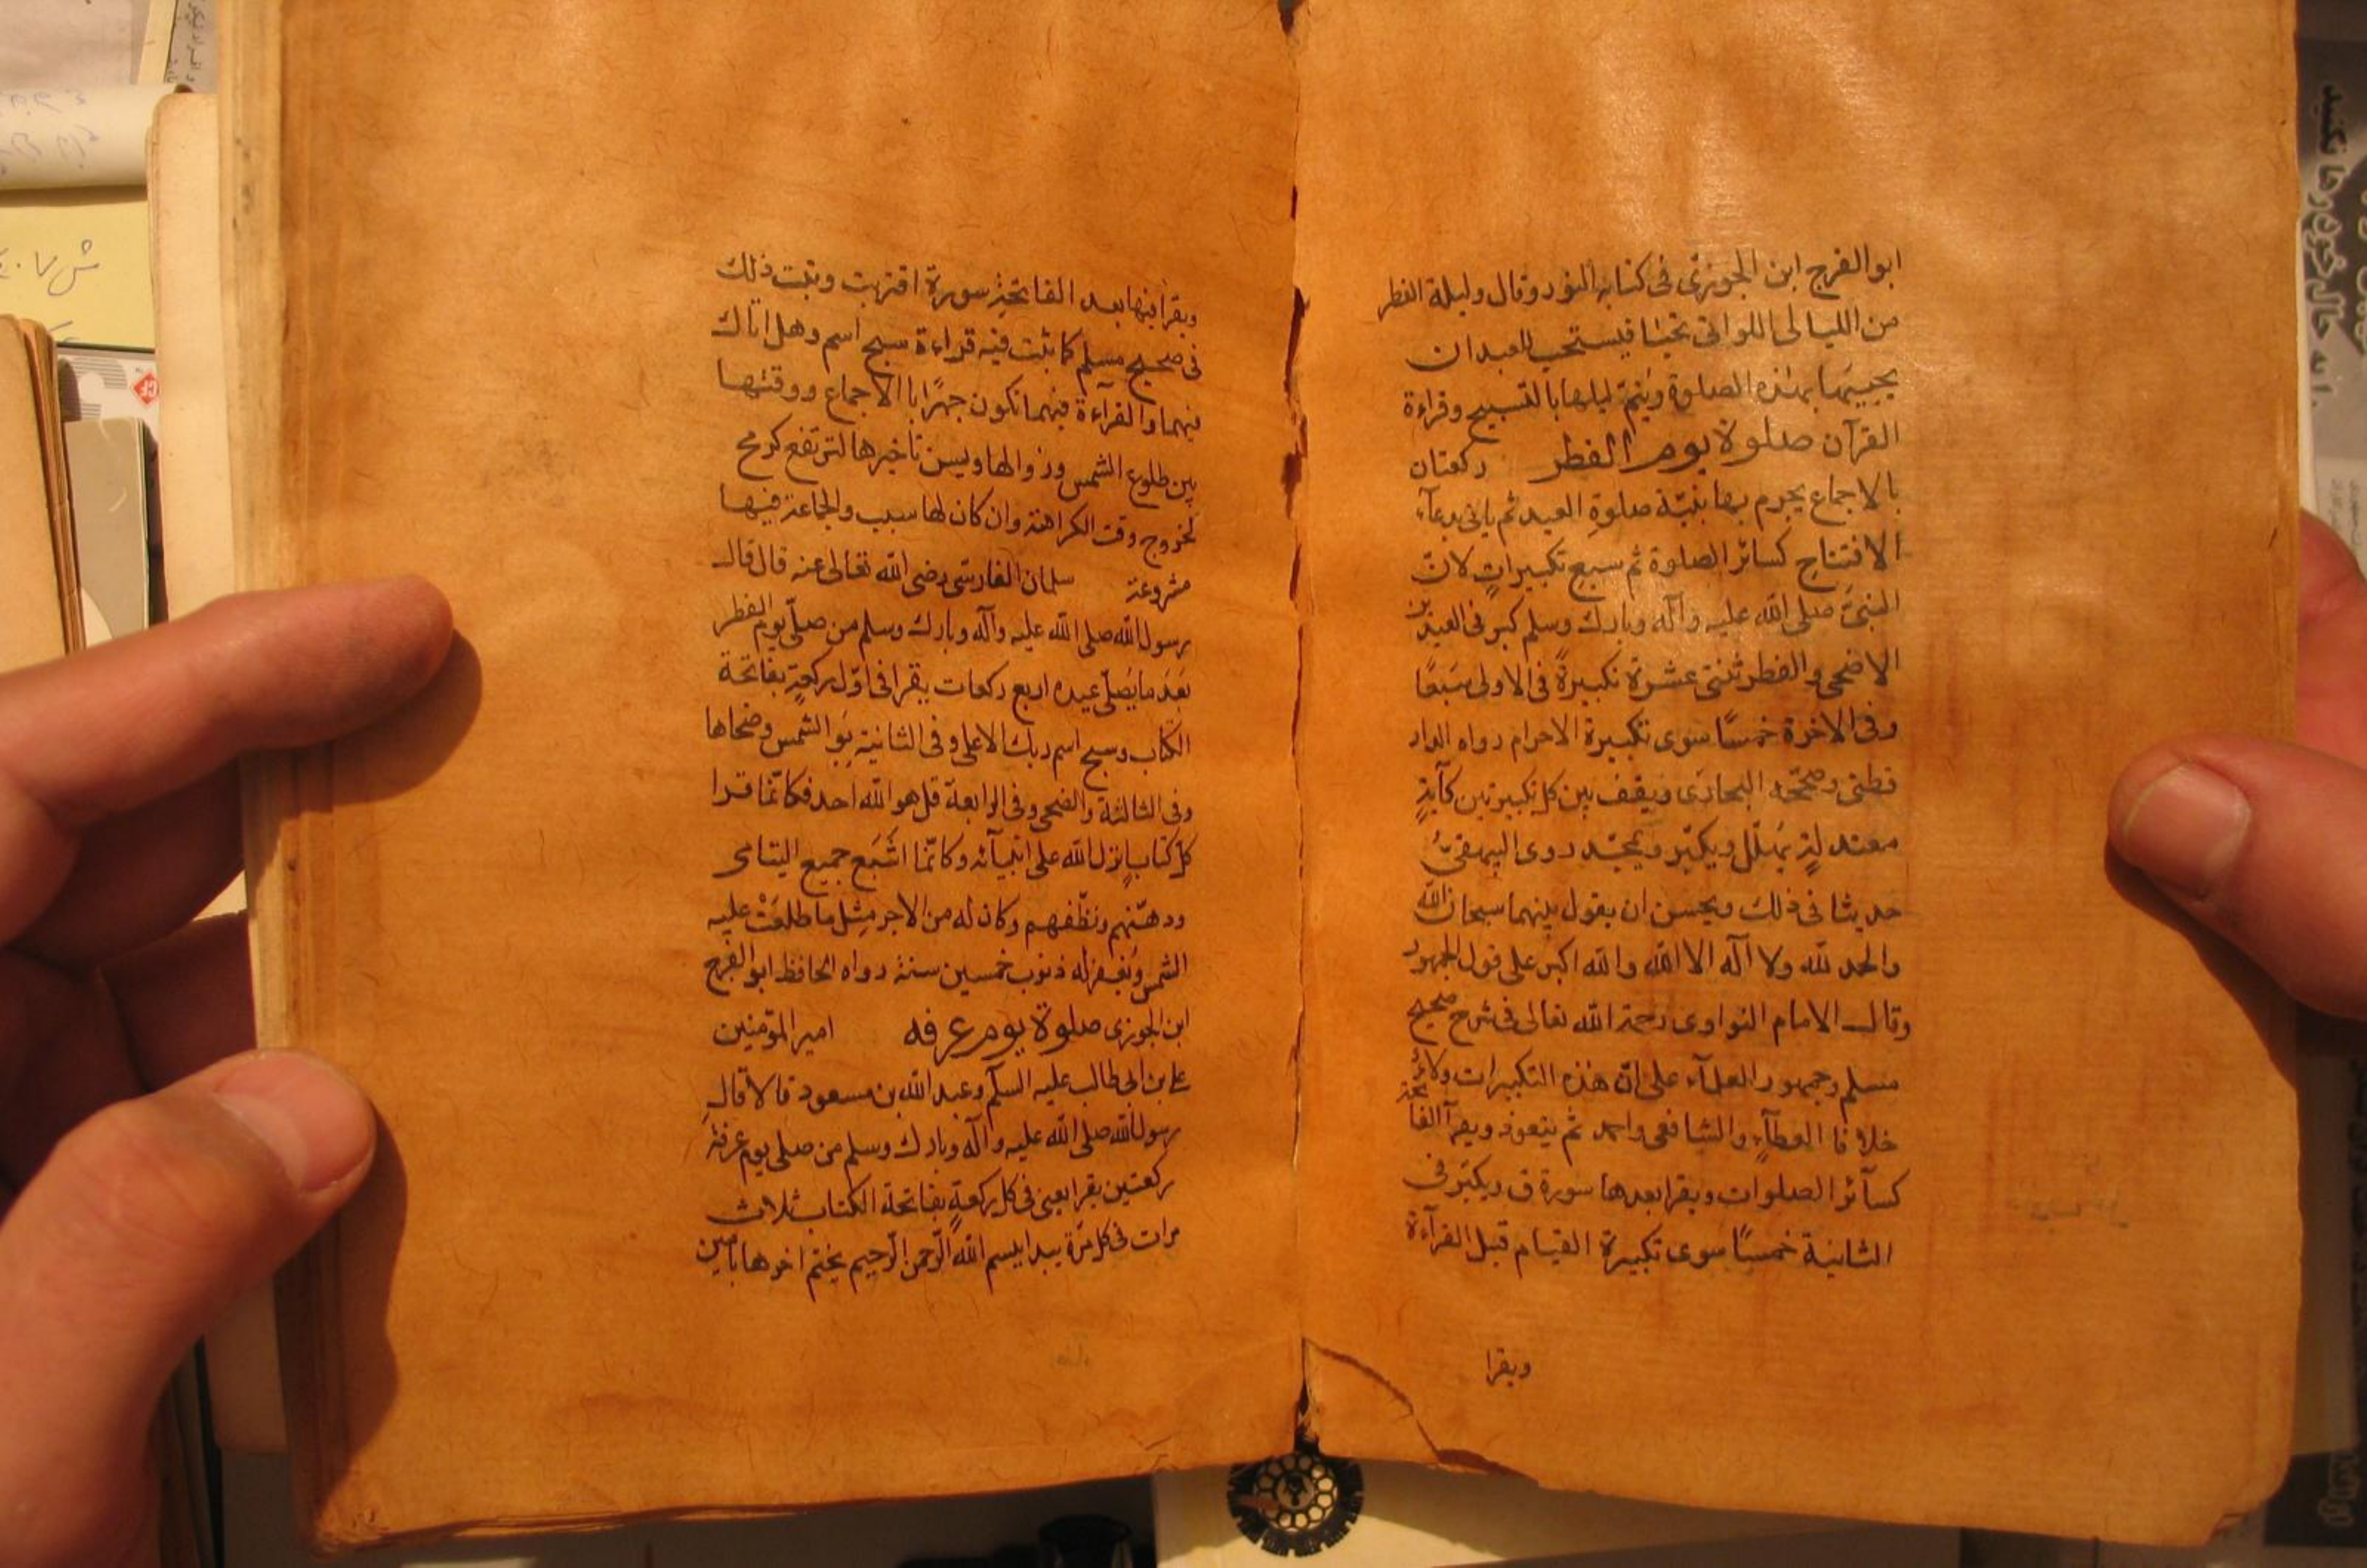 ابوالفرج ابن الجوزى فى كتابه النور وقال وليلة الفطر
من الليالى اللواتى تحيا فيستحب للعبد ان
يحييها بهذه الصلوة ويتم ليلها بالتسبيح وقراءة
القرآن صلوة يوم الفطر ركعتان
بالاجماع يحرم بها بنية صلوة العيد ثم ياتى بدعآء
الافتتاح كسائر الصلوة ثم سبع تكبيرات لان
النبى صلى الله عليه وآله وبارك وسلم كبر فى العيدين
الاضحى والفطر ثنتى عشرة تكبيرة فى الاولى سبعًا
وفى الاخرة خمسًا سوى تكبيرة الاحرام رواه الدار
قطنى وصححه البخارى ويقف بين كل تكبيرتين كآية
معتدلة يهلل ويكبر ويمجد روى البيهقى
حديثا فى ذلك ويحسن ان يقول بينهما سبحان الله
والحمد لله ولا آله الا الله والله اكبر على قول الجمهور
وقال الامام النواوى رحمة الله تعالى فى شرح صحيح
مسلم وجمهور العلمآء على ان هذه التكبيرات ولاءً
خلافا لعطآء والشافعى واحمد ثم يتعوذ ويقرآ الفاتحة
كسآئر الصلوات ويقرا بعدها سورة ق ويكبر فى
الثانية خمسًا سوى تكبيرة القيام قبل القرآءة
ويقرا
ويقرا فيها بعد الفاتحة سورة اقتربت وثبت ذلك
فى صحيح مسلم كما ثبت فيه قراءة سبح اسم وهل اتاك
فيهما والقرآءة فيهما تكون جهرًا بالاجماع ووقتها
بين طلوع الشمس وزوالها ويسن تاخيرها لترتفع كرمح
لخروج وقت الكراهة وان كان لها سبب والجماعة فيها
مشروعة سلمان الفارسى رضى الله تعالى عنه قال قال
رسول الله صلى الله عليه وآله وبارك وسلم من صلّى يوم الفطر
بعد ما يصلّى عيده اربع ركعات يقرا فى اول ركعة بفاتحة
الكتاب وسبح اسم ربك الاعلى وفى الثانية بو الشمس وضحاها
وفى الثالثة والضحى وفى الرابعة قل هو الله احد فكانّما قرا
كل كتاب نزل الله على انبيآئه وكانّما اشبع جميع اليتامى
ودهنهم ونظفهم وكان له من الاجر مثل ما طلعت عليه
الشمس ويغفر له ذنوب خمسين سنة رواه الحافظ ابو الفرج
ابن الجوزى صلوة يوم عرفه امير المؤمنين
على بن ابى طالب عليه السلم وعبد الله بن مسعود قالا قال
رسول الله صلى الله عليه وآله وبارك وسلم من صلى يوم عرفة
ركعتين يقرا يعنى فى كل ركعة بفاتحة الكتاب ثلاث
مرات فى كل مرة يبدا ببسم الله الرحمن الرحيم يختم اخرها بامين